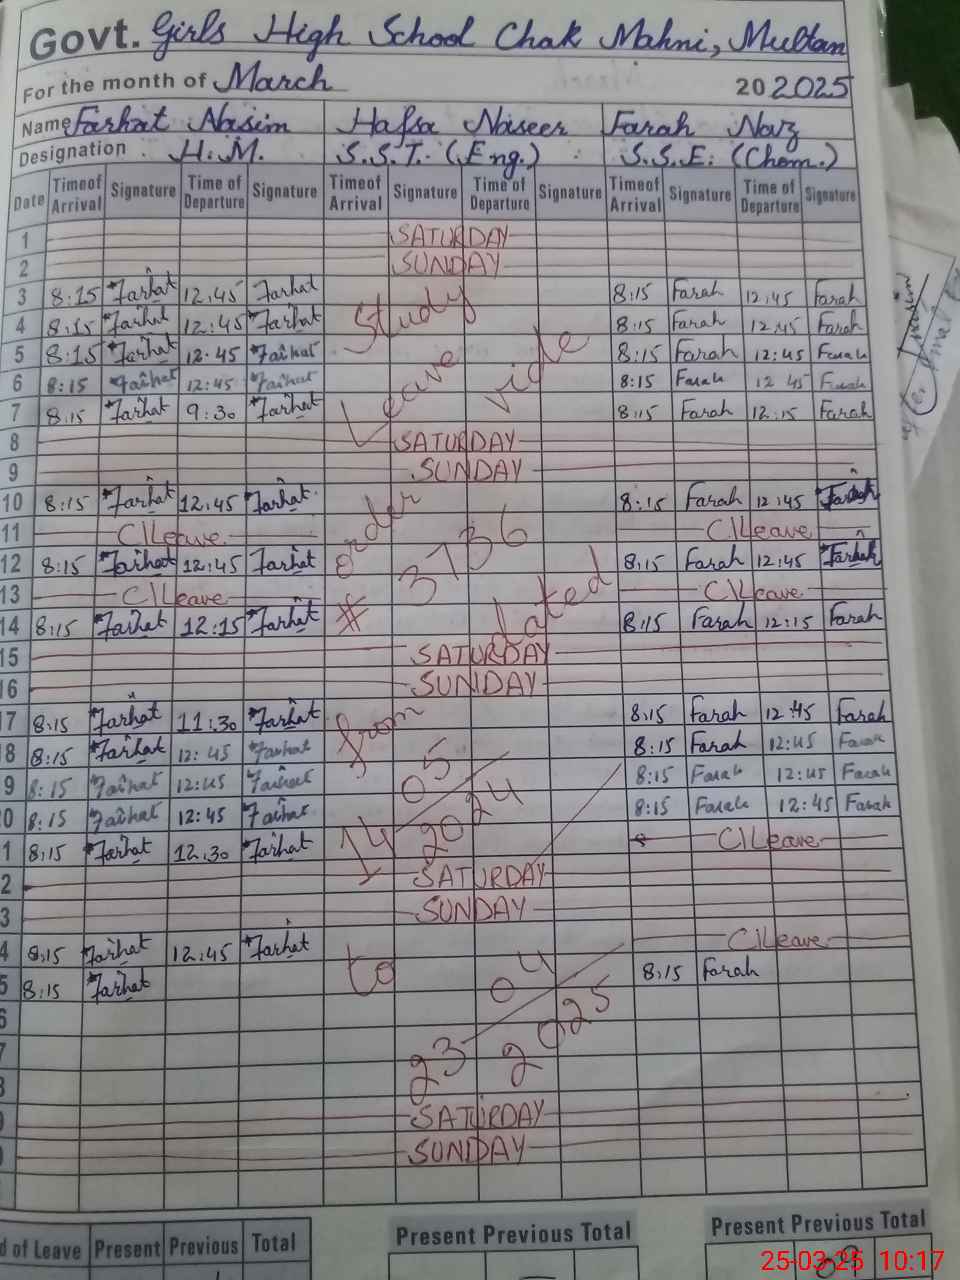 Govt. Girls High School Chak Mahni, Multan
For the month of March 20 2025
Name Farhat Nasim Hafsa Naseer Farah Naz
Designation H.M. S.S.T. (Eng.) S.S.E. (Chem.)
Date Time of Arrival Signature Time of Departure Signature Time of Arrival Signature Time of Departure Signature Time of Arrival Signature Time of Departure Signature
1 SATURDAY
2 SUNDAY
3 8:15 Farhat 12:45 Farhat 8:15 Farah 12:45 Farah
4 8:15 Farhat 12:45 Farhat Study 8:15 Farah 12:45 Farah
5 8:15 Farhat 12:45 Farhat 8:15 Farah 12:45 Farah
6 8:15 Farhat 12:45 Farhat Leave vide 8:15 Farah 12:45 Farah
7 8:15 Farhat 9:30 Farhat 8:15 Farah 12:15 Farah
8 SATURDAY
9 SUNDAY
10 8:15 Farhat 12:45 Farhat 8:15 Farah 12:45 Farah
11 C/Leave order C/Leave
12 8:15 Farhat 12:45 Farhat 3736 8:15 Farah 12:45 Farah
13 C/Leave C/Leave
14 8:15 Farhat 12:15 Farhat # dated 8:15 Farah 12:15 Farah
15 SATURDAY
16 SUNDAY
7 8:15 Farhat 11:30 Farhat from 8:15 Farah 12:45 Farah
8 8:15 Farhat 12:45 Farhat 8:15 Farah 12:45 Farah
9 8:15 Farhat 12:45 Farhat 05 8:15 Farah 12:45 Farah
0 8:15 Farhat 12:45 Farhat 8:15 Farah 12:45 Farah
1 8:15 Farhat 12:30 Farhat 14 2024 C/Leave
2 SATURDAY
3 SUNDAY
4 8:15 Farhat 12:45 Farhat C/Leave
5 8:15 Farhat to 04 8:15 Farah
6
7 23 2025
8
SATURDAY
SUNDAY
d of Leave Present Previous Total Present Previous Total Present Previous Total
25-03-25 10:17